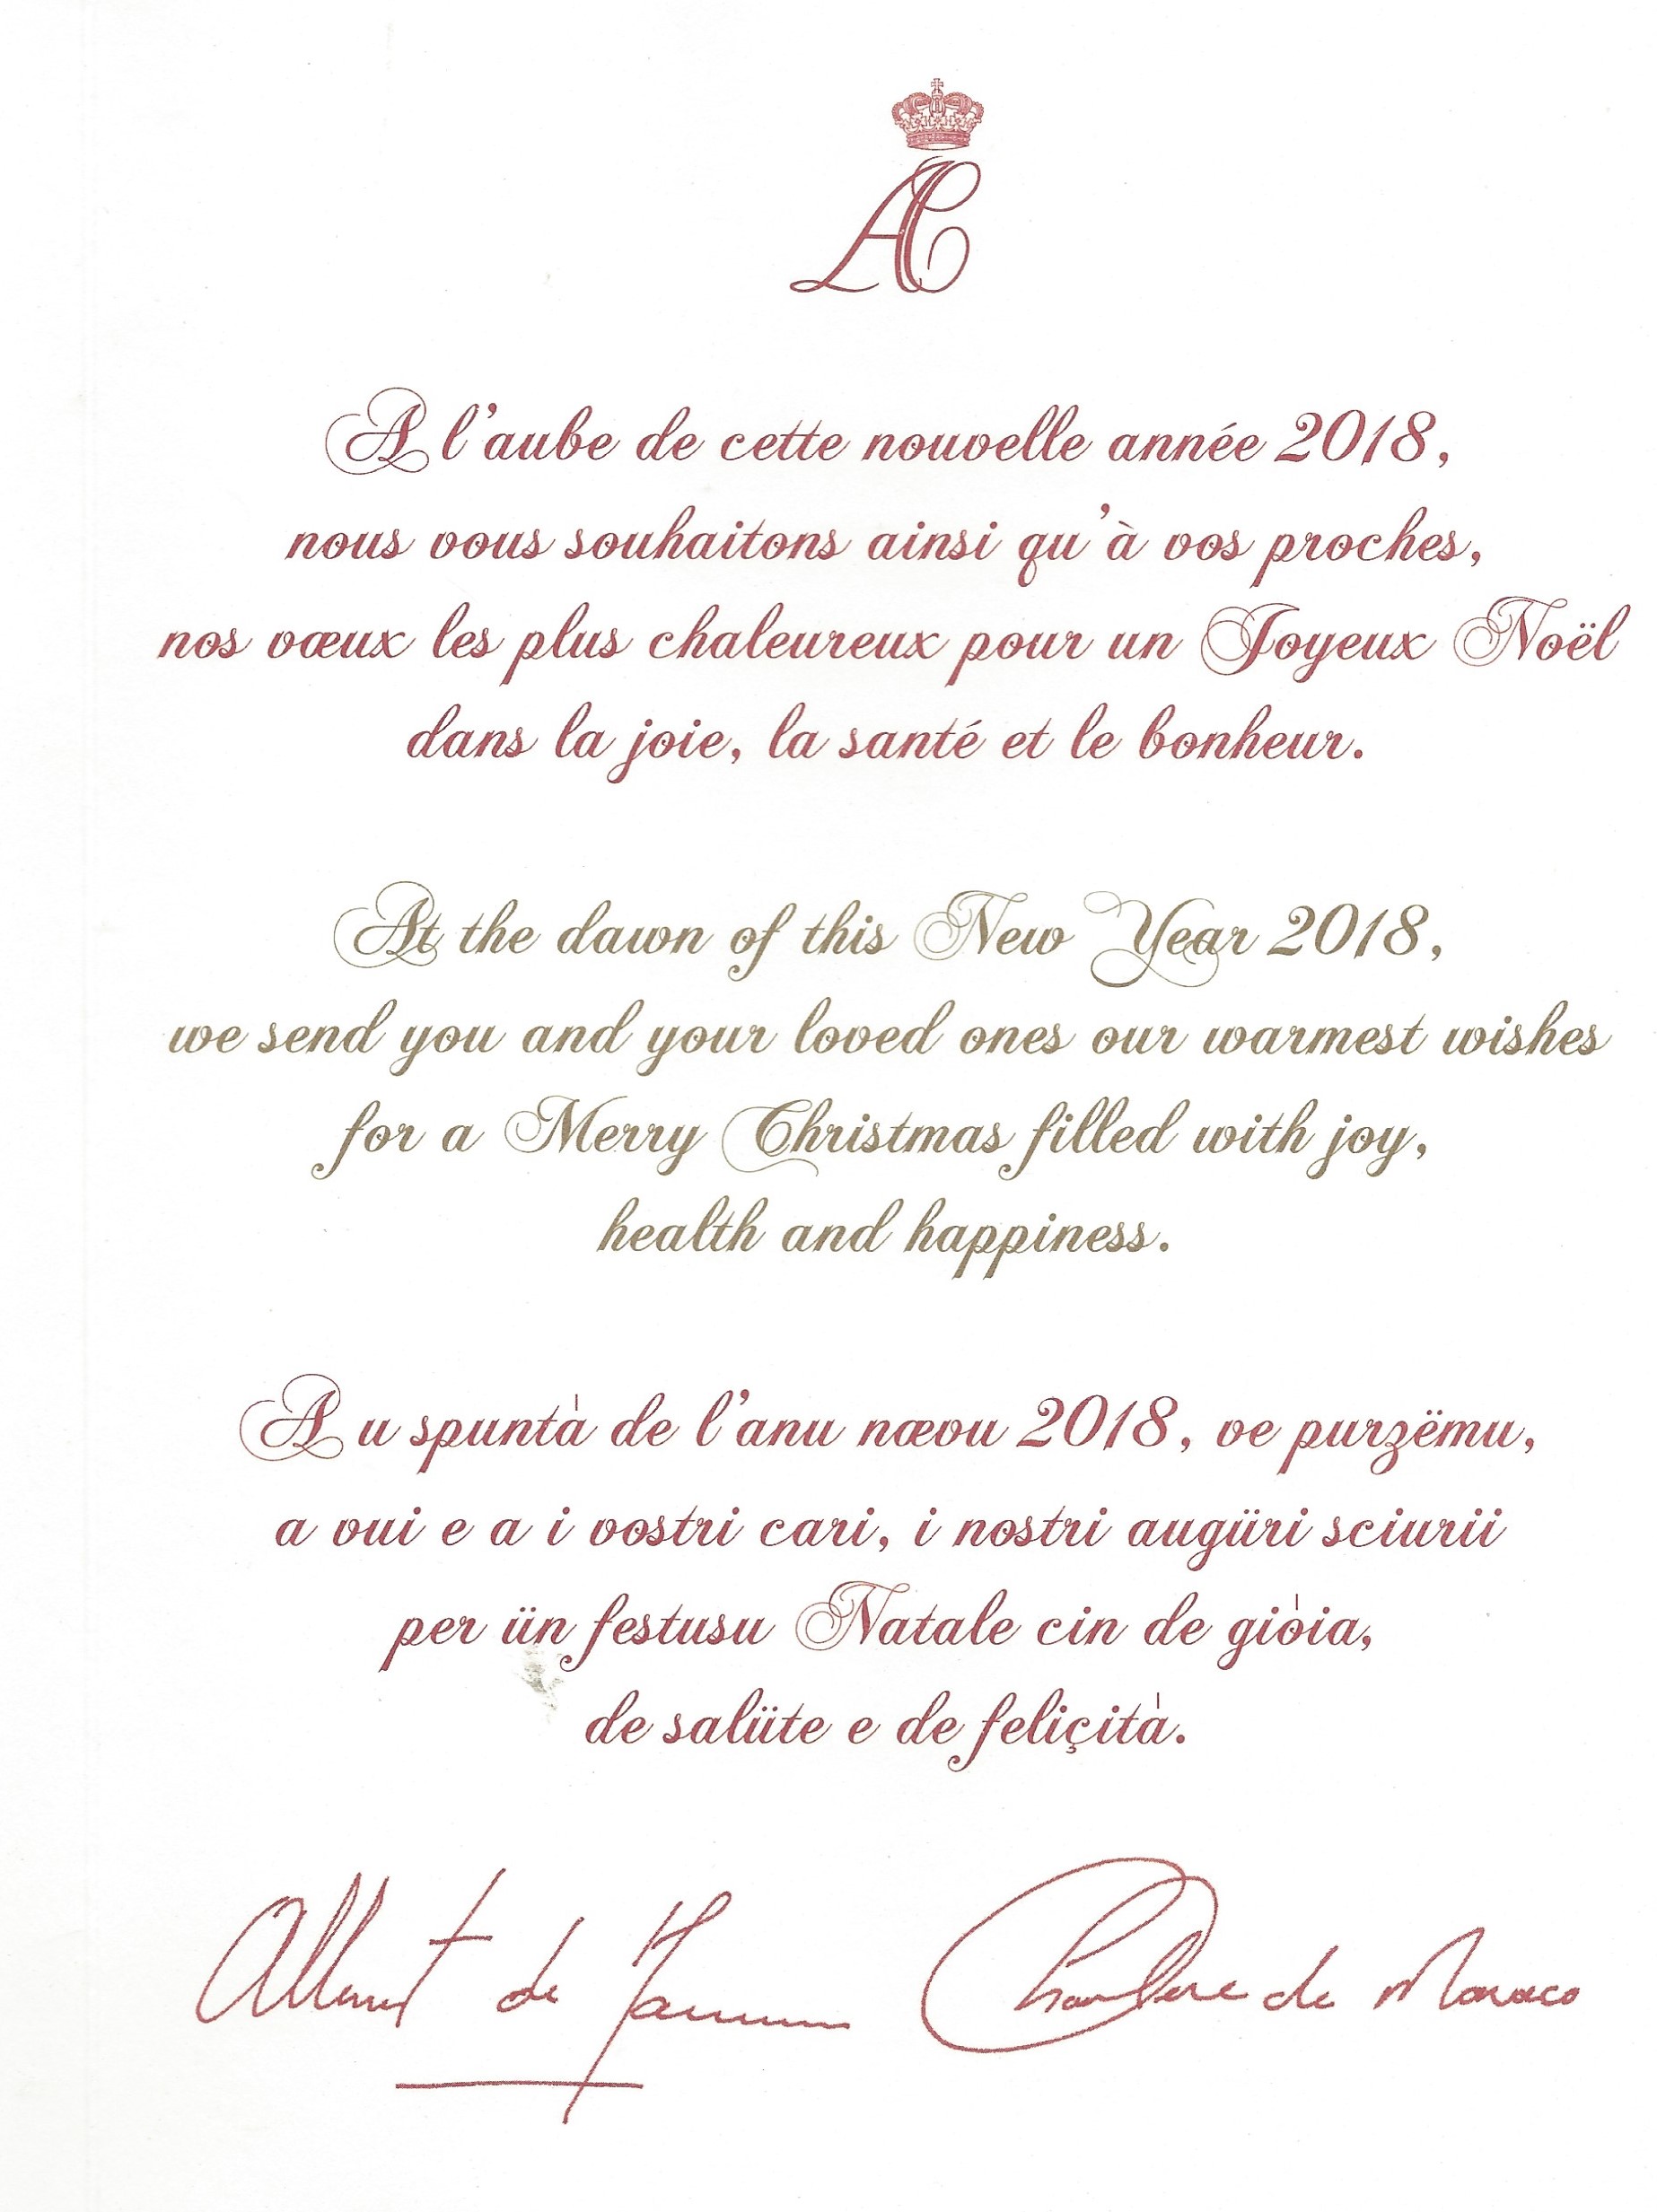 AC
A l'aube de cette nouvelle année 2018,
nous vous souhaitons ainsi qu'à vos proches,
nos vœux les plus chaleureux pour un Joyeux Noël
dans la joie, la santé et le bonheur.
At the dawn of this New Year 2018,
we send you and your loved ones our warmest wishes
for a Merry Christmas filled with joy,
health and happiness.
A u spuntà de l'anu nœvu 2018, ve purzëmu,
a vui e a i vostri cari, i nostri augüri sciurii
per ün festusu Natale cin de giòia,
de salüte e de feliçità.
Albert de Monaco Charlene de Monaco